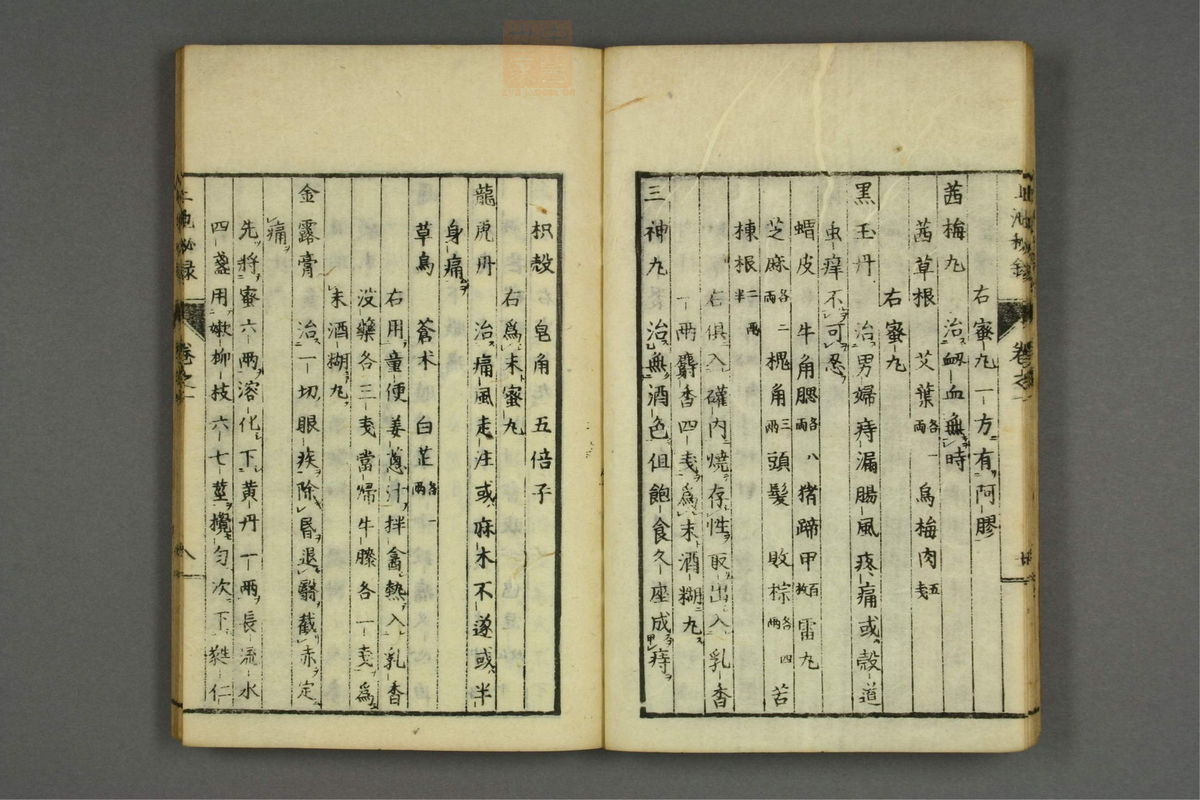 右蜜丸一方有阿膠
茜梅丸 治衂血無時
茜草根 艾葉各一兩 烏梅肉五戔
右蜜丸
黑玉丹 治男婦痔漏腸風疼痛或殼道
虫痒不可忍
蝟皮 牛角腮各八兩 猪蹄甲百枚 雷丸
芝麻各二兩 槐角三兩 頭髮 敗棕各四兩 苦
楝根二兩半
右俱入罐内燒存性取出入乳香
一兩麝香四戔為末酒糊丸
三神丸 治無酒色但飽食久座成痔
枳殼 皂角 五倍子
右為末蜜丸
龍虎丹 治痛風走注或麻木不遂或半
身痛
草烏 蒼术 白芷各一兩
右用童便姜葱汁拌盦熱入乳香
没藥各三戔當歸牛膝各一戔為
末酒糊丸
金露膏 治一切眼疾除昏退翳截赤定
痛
先将蜜六兩溶化下黄丹一兩長流水
四盞用嫩柳枝六七莖攪匀次下蕤仁
卷之一
八